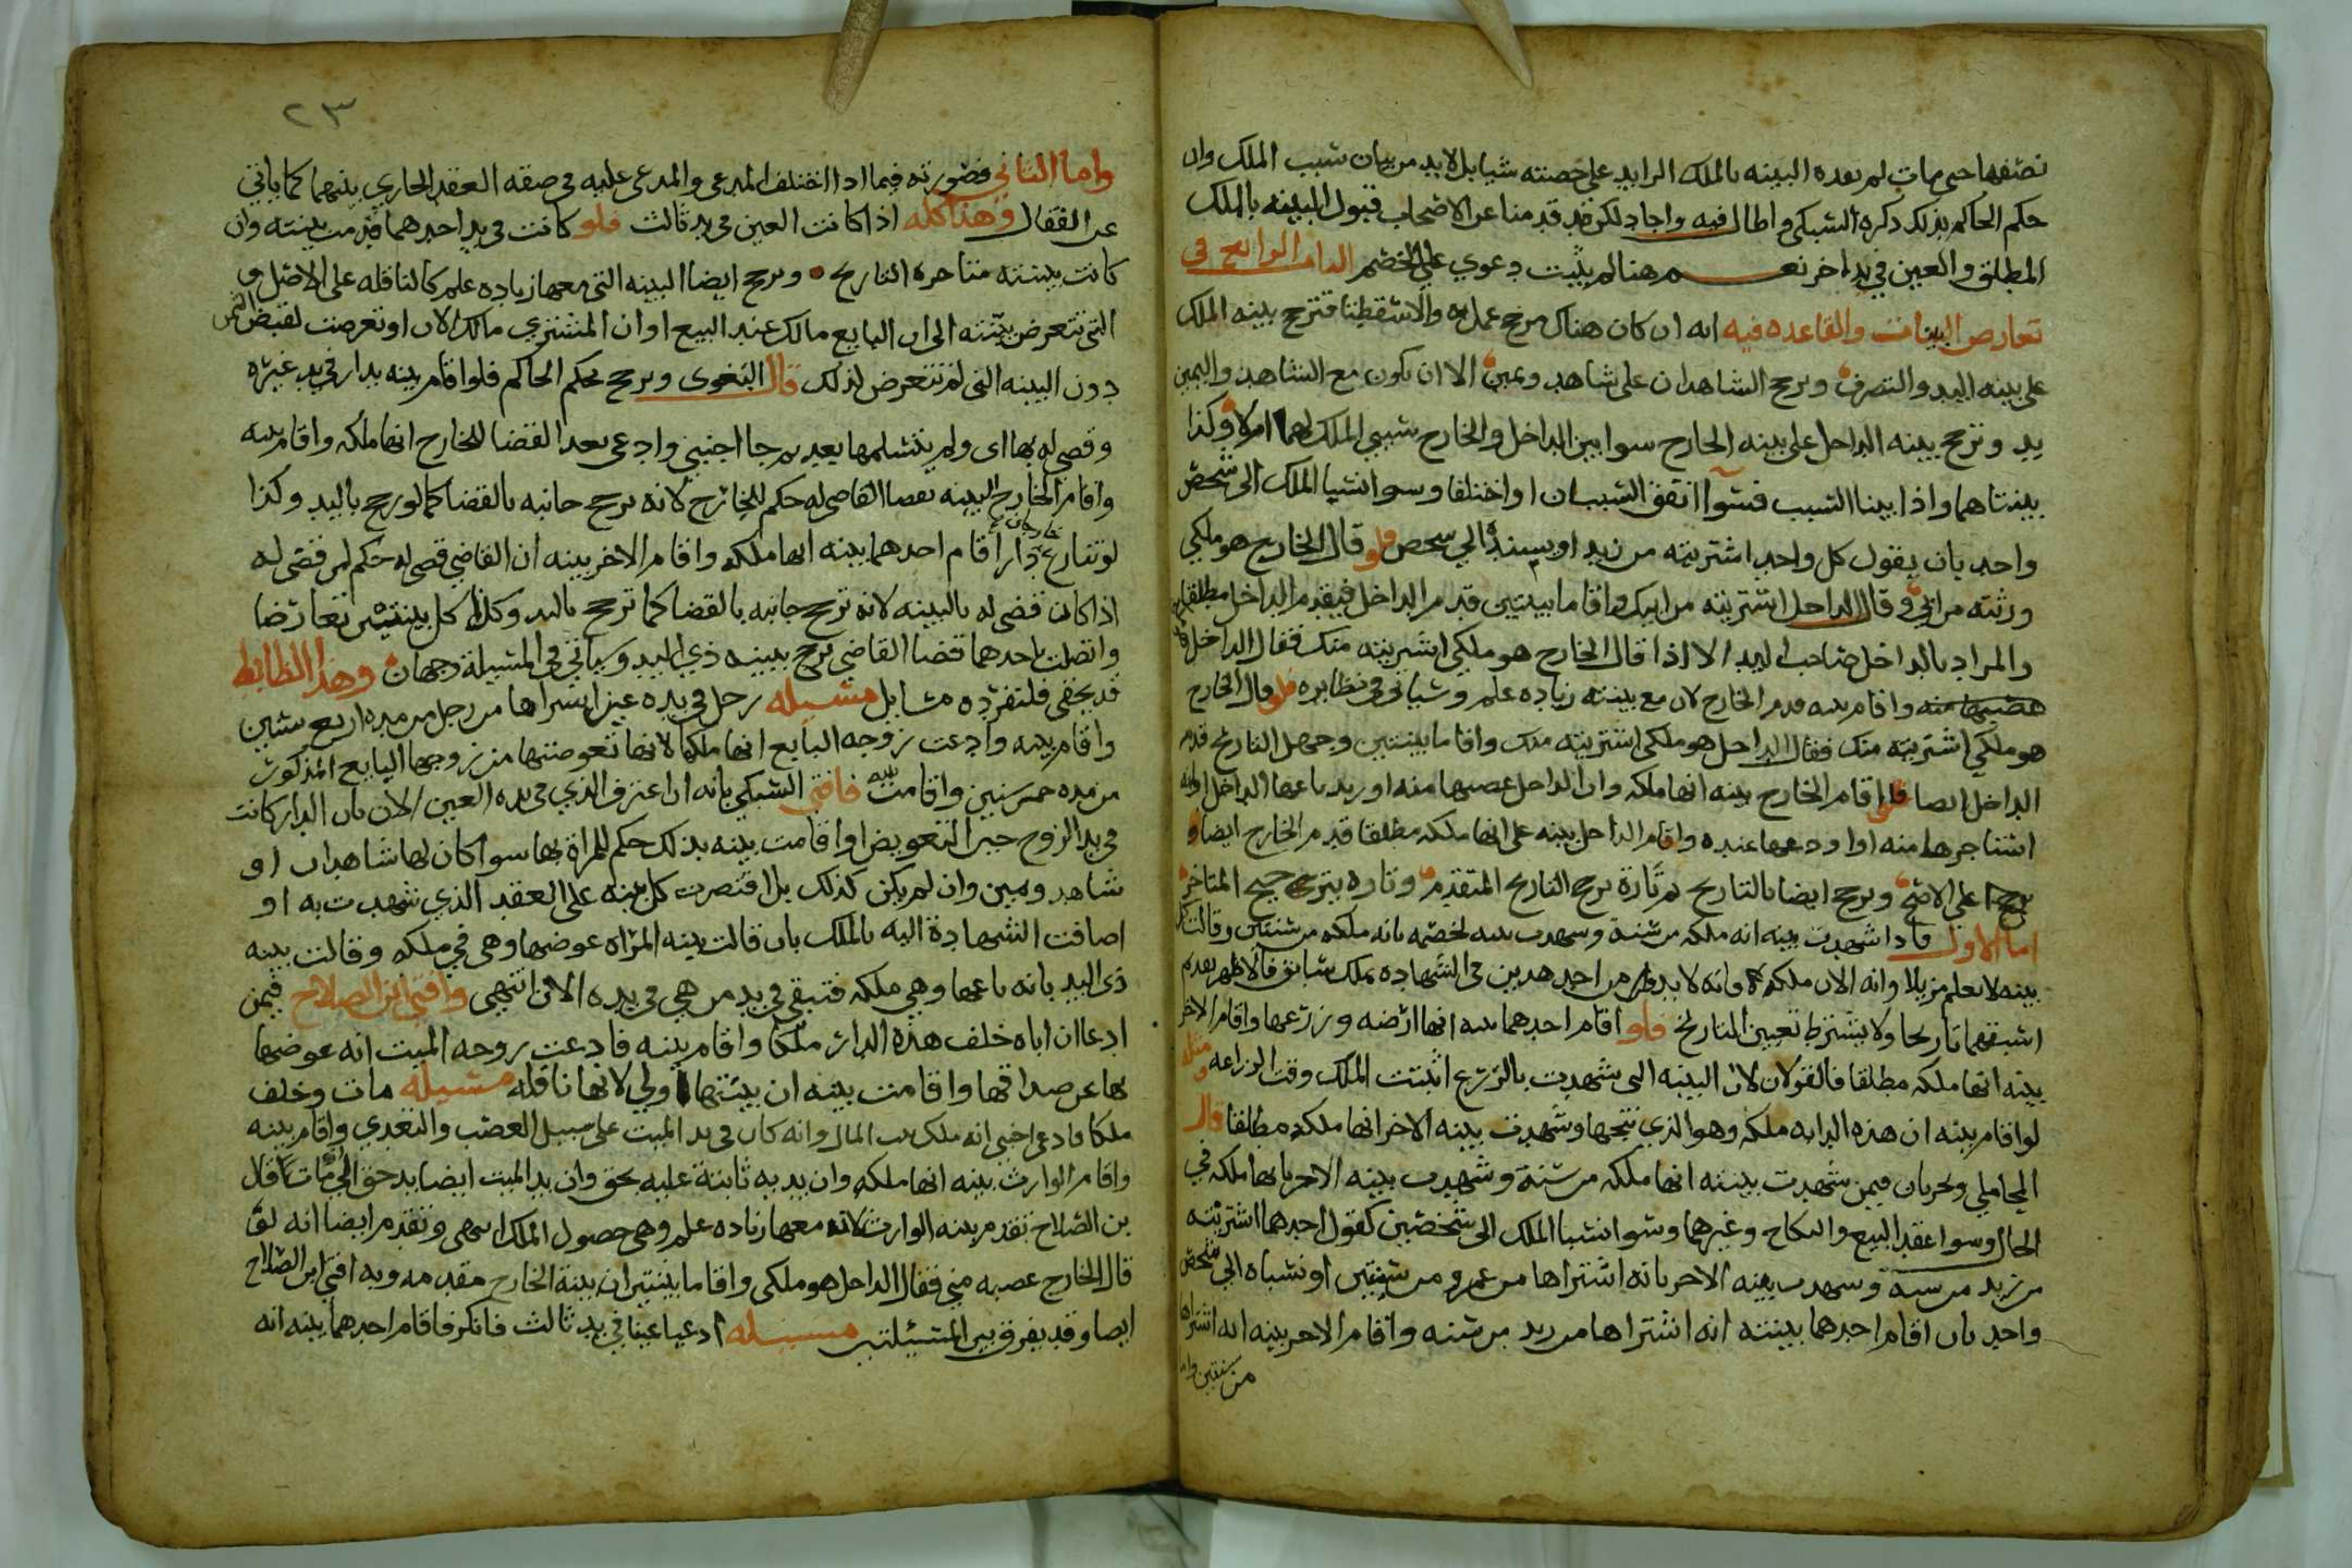 نصفها حتى مات لم تعده البينه بالملك الزايد على حصته شيا بل لابد من بيان سبب الملك وان
حكم الحاكم بذلك ذكره السبكي واطال فيه واجاد لكن قد قدمنا عن الاصحاب قبول البينه بالملك
المطلق والعين في يد اخر نعم هنا لم يثبت دعوي على الخصم الباب الرابع في
تعارض البينات والقاعده فيه انه ان كان هناك مرجح عمل به والا سقطتا فترجح بينه الملك
على بينه اليد والتصرف ويرجح الشاهدان على شاهد ويمين الا ان يكون مع الشاهد واليمين
يد وترجح بينه الداخل على بينه الخارج سوا بين الداخل والخارج سببي الملك لهما ام لا وكذا
بينتاهما واذا بينا السبب فسوا اتفق السببان او اختلفا وسوا نسبا الملك الى شخص
واحد بان يقول كل واحد اشتريته من زيد او يسنده الى شخص فلو قال الخارج هو ملكي
ورثته من ابي وقال الداخل اشتريته من ابيك واقاما بينتين قدم الداخل فيقدم الداخل مطلقا
والمراد بالداخل صاحب اليد الا اذا قال الخارج هو ملكي اشتريته منك فقال الداخل
غصبتها منه واقام بينه قدم الخارج لان مع بينته زياده علم وسياتي في نظايره فلو قال الخارج
هو ملكي اشتريته منك فقال الداخل هو ملكي اشتريته منك واقاما بينتين وجهل التاريخ قدم
الداخل ايضا فلو اقام الخارج بينه انها ملكه وان الداخل غصبها منه او زيد باعها الداخل او انه
استاجرها منه او اودعها عنده واقام الداخل بينه على انها ملكه مطلقا قدم الخارج ايضا و
يرجح على الاصح ويرجح ايضا بالتاريخ ثم تارة يرجح التاريخ المتقدم وتاره يترجح المتاخر
اما الاول فاذا شهدت بينه انه ملكه من سنة وشهدت بينه لخصمه بانه ملكه من سنتين وقالت كل
بينه لا نعلم مزيلا وانه الان ملكه فانه لابد من احد هذين في الشهاده بملك سابق فالاظهر تقديم
اسبقهما تاريخا ولا يشترط تعيين التاريخ فلو اقام احدهما بينه انها ارضه وزرعها واقام الاخر
بينه انها ملكه مطلقا فالقولان لان البينه التي شهدت بالزرع اثبتت الملك وقت الزراعه ومثله
لو اقام بينه ان هذه الدابه ملكه وهو الذي نتجها وشهدت بينه الاخر انها ملكه مطلقا قال
المحاملي ويجريان فيمن شهدت بينته انها ملكه من سنة وشهدت بينه الاخر بانها ملكه في
الحال وسوا عقد البيع والنكاح وغيرهما وسوا نسبا الملك الى شخصين كقول احدهما اشتريته
من زيد من سنة وشهدت بينه الاخر بانه اشتراها من عمرو من سنتين او نسباه الى شخص
واحد بان اقام احدهما بينته انه اشتراها من زيد من سنه واقام الاخر بينه انه اشتراها
من سنتين وا
٢٣
واما الثاني فصورته فيما اذا اختلف المدعي والمدعى عليه في صفه العقد الجاري بينهما كما ياتي
عن القفال وهذا كله اذا كانت العين في يد ثالث فلو كانت في يد احدهما قدمت بينته وان
كانت بينته متاخره التاريخ ويرجح ايضا البينه التي معها زياده علم كالناقله على الاصل و
التي تتعرض بينته الى ان البايع مالك عند البيع او ان المشتري مالك الان او تعرضت لقبض الثمن
دون البينه التي لم تتعرض لذلك قال البغوي ويرجح بحكم الحاكم فلو اقام بينه بدار في يد غيره
وقضي له بها اي ولم يتسلمها بعد ثم جا اجنبي وادعى بعد القضا للخارج انها ملكه واقام بينه
واقام الخارج البينه بقضا القاضي له حكم للخارج لانه ترجح جانبه بالقضا كما لو رجح باليد وكذا
لو تنازع خارجان دارا اقام احدهما بينه انها ملكه واقام الاخر بينه ان القاضي قضى له حكم لمن قضى له
اذا كان قضى له بالبينه لانه ترجح جانبه بالقضا كما ترجح باليد وكذا كل بينتين تعارضا
واتصلت باحدهما قضا القاضي ترجح ببينه ذي اليد وسياتي في المسيلة وجهان وهذا الظابط
قد يخفى فلنفرد مسايل مسيله رجل في يده عين اشتراها من رجل من مده اربع سنين
واقام بينه وادعت زوجه البايع انها ملكها لانها تعوضتها من زوجها البايع المذكور
من مده خمس سنين واقامت بينه فافتى السبكي بانه ان اعترف الذي في يده العين الان بان الدار كانت
في يد الزوج حين التعويض او اقامت بينه بذلك حكم للمراة بها سوا كان لها شاهدان او
شاهد ويمين وان لم يكن كذلك بل اقتصرت كل بينه على العقد الذي شهدت به او
اضافت الشهادة اليه بالملك بان قالت بينه المراه عوضها وهي في ملكه وقالت بينه
ذي اليد بانه باعها وهي ملكه فتبقى في يد من هي في يده الان انتهى وافتى ابن الصلاح فيمن
ادعا ان اباه خلف هذه الدار ملكا واقام بينه فادعت زوجه الميت انه عوضها
بها عن صداقها واقامت بينه ان بينتها اولي لانها ناقله مسيله مات وخلف
ملكا فادعى اجنبي انه ملك بيت المال وانه كان في يد الميت على سبيل الغصب والتعدي واقام بينه
واقام الوارث بينه انها ملكه وان يد به ثابتة عليه بحق وان يد الميت ايضا يد حق الى مات قال
بن الصلاح تقدم بينه الوارث لانه معها زياده علم وهي حصول الملك انتهى وتقدم ايضا انه لو
قال الخارج غصبه مني فقال الداخل هو ملكي واقاما بينتين ان بينة الخارج مقدمه وبه افتى ابن الصلاح
ايضا وقد يفرق بين المسئلتين مسيله ادعيا عينا في يد ثالث فانكر فاقام احدهما بينه انه